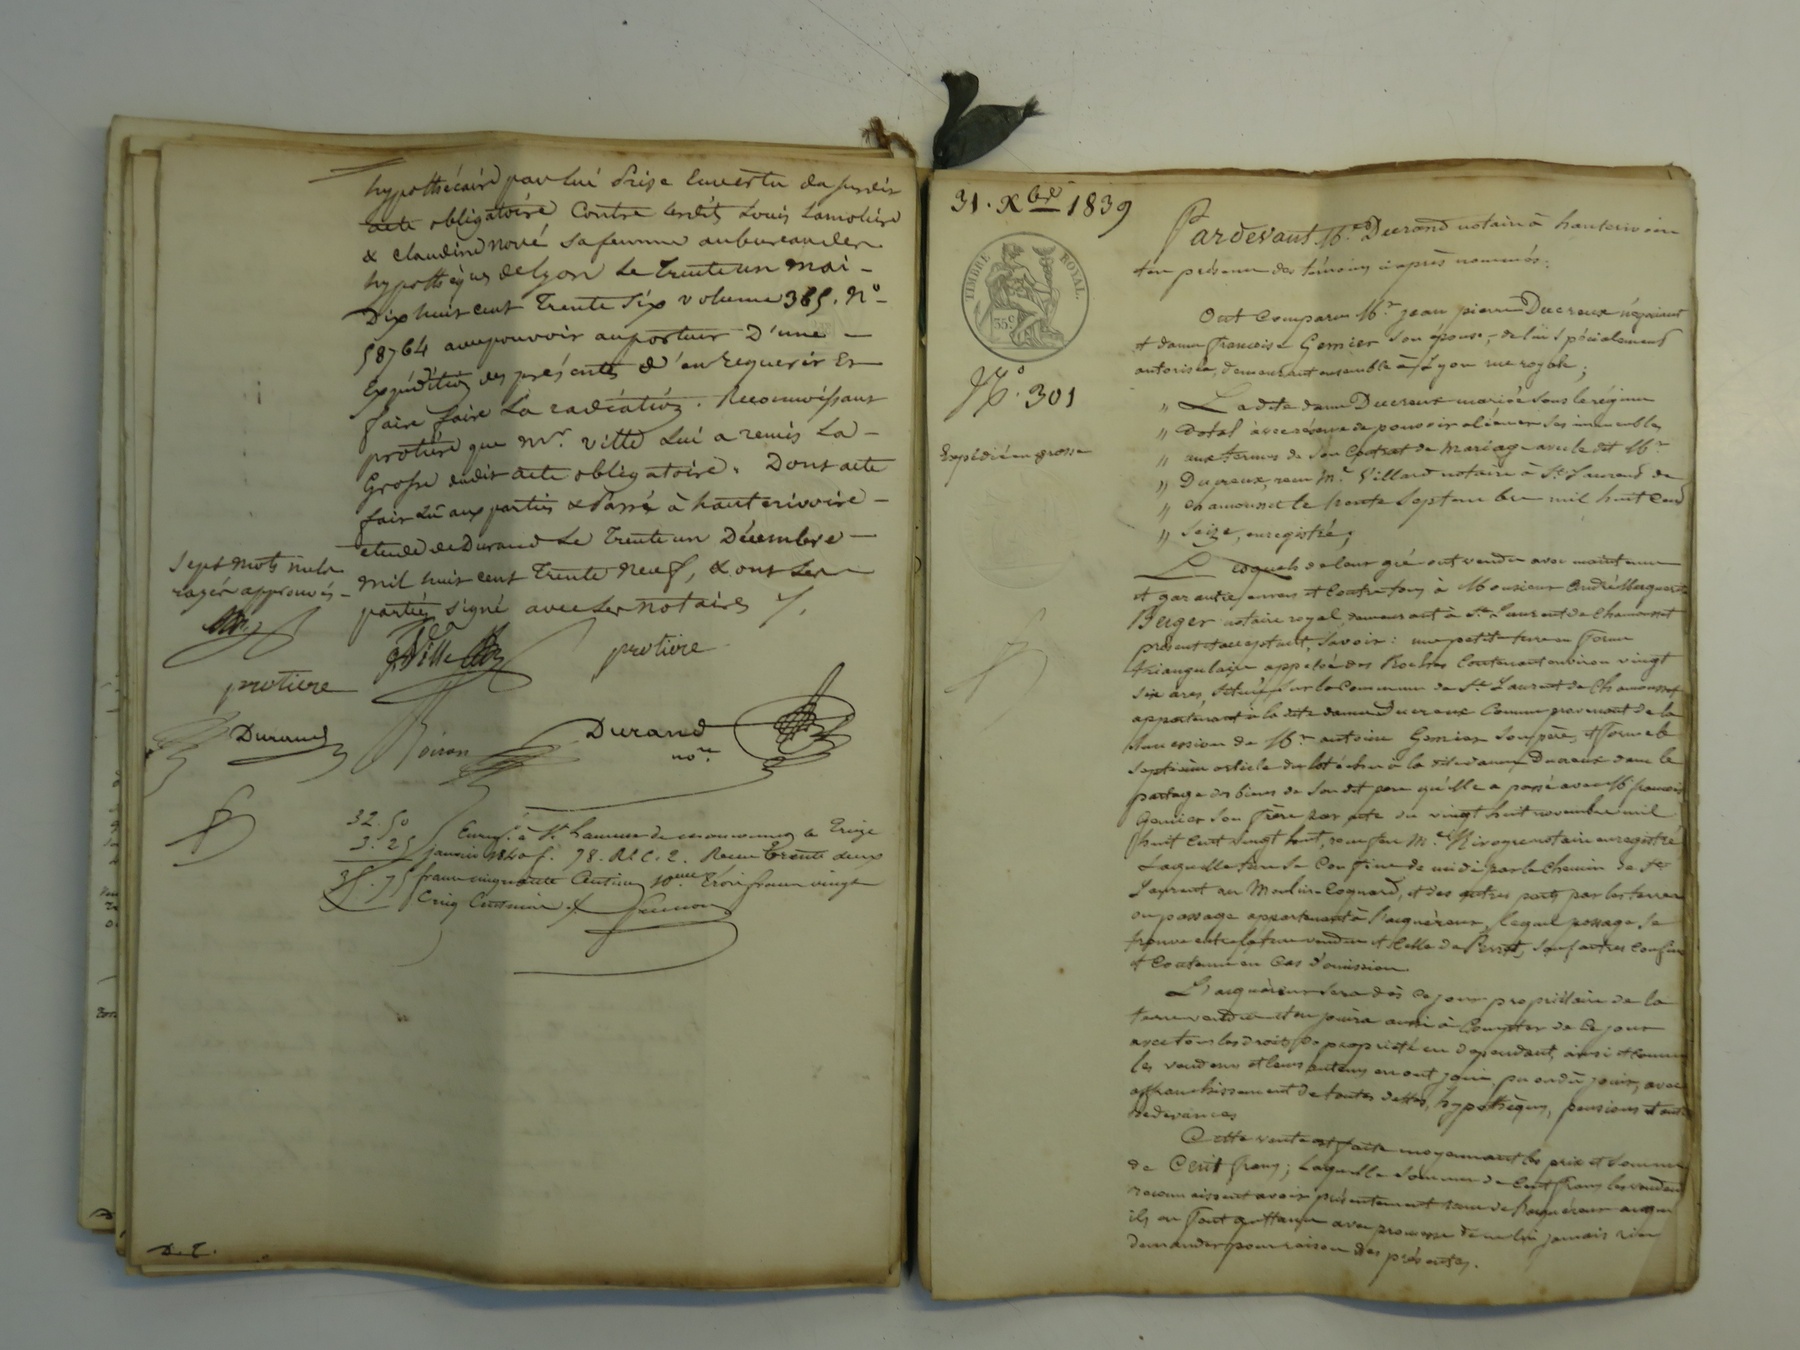 hypothécaire par lui prise en vertu du susdit
acte obligatoire contre lesdits Louis Lamoliere
& Claudine Noué sa femme au bureau des
hypothèques de Lyon le trente un mai -
Dix huit cent trente six volume 365. N° -
58764 avec pouvoir au porteur D'une -
Expédition des présentes d'en requerir Et
faire faire La radiation. Reconnoissant
protiere que Mr. Ville Lui a remis La -
Grosse dudit acte obligatoire. Dont acte
fait Lu aux parties & Passé à hauterivoire -
etude de Durand Le trente un Décembre -
mil huit cent trente neuf, & ont Les -
parties signé avec Les notaires
Sept mots nuls
rayés approuvés -
Ville
protiere
protiere
Durand
Durand
nore
32. 50
3. 25
35. 75
Enreg. à St. Laurent de chamousset le treize
janvier 1840 f. 78. Ro. C. 2. Recu trente deux
francs cinquante Centimes 10eme trois francs vingt
Cinq Centimes
D. E.
31. Xbre 1839
TIMBRE ROYAL.
35c
N° 301
Expédié en grosse
Pardevant Me. Durand notaire à hauterivoire
& en présence des témoins ci après nommés;
Ont Comparu Mr. jean pierre Ducreux négociant
& dame françoise Garnier son épouse, de lui spécialement
autorisée, demeurant ensemble à Lyon rue royale;
" La dite dame Ducreux mariée sous le régime
" dotal avec réserve de pouvoir aliéner ses immeubles
" aux termes de son Contrat de Mariage avec le dit Mr.
" Ducreux, reçu Me. Villard notaire à St. Laurent de
" chamousset le trente Septembre mil huit Cent
" seize, enregistré;
Lesquels de leur gré ont vendu avec maintenue
et garantie envers et Contre tous à Monsieur André
Berger notaire royal, demeurant à St. Laurent de Chamousset
présent et acceptant, Savoir: une petite terre en forme
triangulaire appelée des Roches Contenant environ vingt
six ares, située sur la Commune de St. Laurent de Chamousset
appartenant à la dite dame Ducreux Comme provenant de la
succession de Mr. antoine Garnier son père, & forme le
septième article du lot échu à la dite dame Ducreux dans le
partage des biens de son dit père qu'elle a passé avec Mr. francois
Garnier son frère par acte du vingt huit novembre mil
huit Cent vingt huit, reçu Me. notaire enregistré
Laquelle terre se Confine de midi par le Chemin de St.
Laurent au Moulin Coquard, et des autres parts par les terres
ou passage appartenant à l'acquéreur, lequel passage se
trouve entre la terre vendue et Celle de Perret, sauf autres Confins
et Contenu en Cas d'omission
L'acquéreur sera dès Ce jour propriétaire de la
terre vendue et en jouira aussi à Compter de Ce jour
avec tous les droits de propriété en dépendant, ainsi et comme
les vendeurs et leurs auteurs en ont joui, pu ou dû jouir, avec
affranchissement de toutes dettes, hypothèques, pensions et autres
redevances
Cette vente est faite moyennant le prix et somme
de Cent francs; Laquelle somme de Cent francs les vendeurs
reconnaissent avoir présentement reçu de l'acquéreur auquel
ils en font quittance avec promesse de ne lui jamais rien
demander pour raison des présentes.